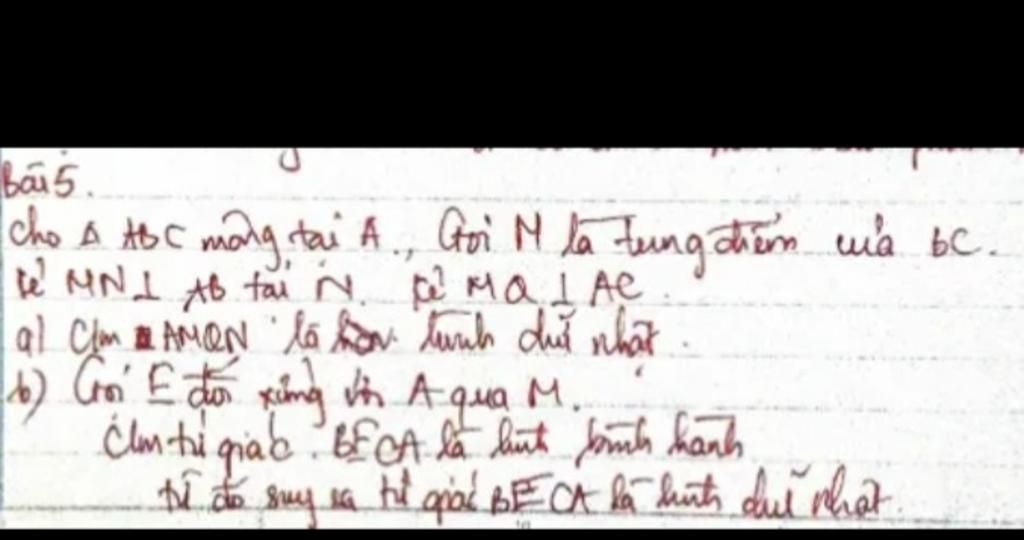 Bài 5.
Cho Δ ABC vuông tại A, Gọi M là trung điểm của BC.
kẻ MN⊥ AB tại N. kẻ MQ ⊥ AC.
a) C/m AMQN là hình chữ nhật.
b) Gọi E đối xứng với A qua M.
C/m tứ giác BECA là hình bình hành
từ đó suy ra tứ giác BECA là hình chữ nhật.